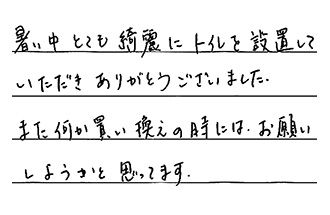 暑い中とても綺麗にトイレを設置して
いただきありがとうございました.
また何か買い換えの時には、お願い
しようかと思ってます.